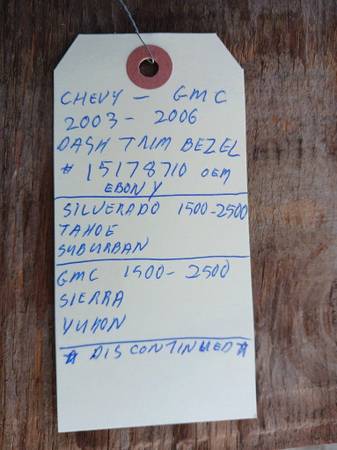 CHEVY - GMC
2003 - 2006
DASH TRIM BEZEL
# 15178710 OEM
EBONY
SILVERADO 1500-2500
TAHOE
SUBURBAN
GMC 1500-2500
SIERRA
YUKON
* DISCONTINUED *